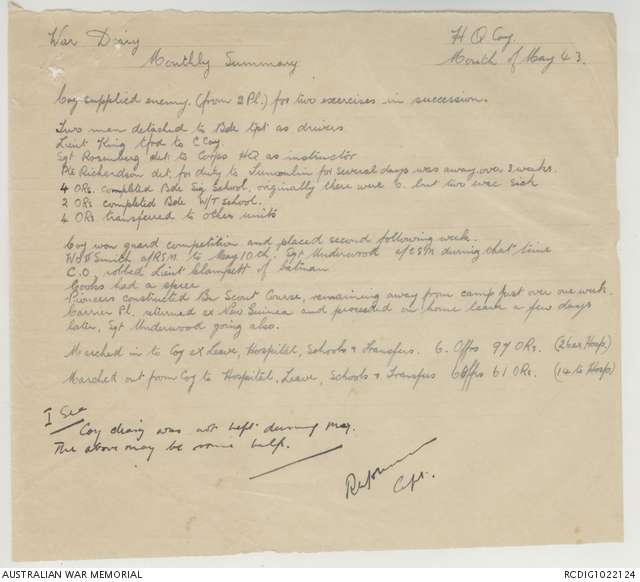 War Diary
H Q Coy.
Monthly Summary
Month of May 43.
Coy supplied enemy. (from 2 Pl.) for two exercises in succession.
Two men detached to Bde Tpt as drivers.
Lieut King tfrd to C Coy.
Sgt Rosenberg det. to Corps HQ as instructor
Pte Richardson det. for duty to for several days was away over 3 weeks.
4 ORs. completed Bde Sig School, originally there were 6. but two evac sick
2 ORs completed Bde W/T School.
4 ORs transferred to other units
Coy won guard competition and placed second following week.
WOII Smith a/RSM. to May 10th. Sgt Underwood a/CSM during that time
C.O. robbed Lieut Clampett of batman
Cooks had a spree
Pioneers constructed Bn Scout Course, remaining away from camp just over one week.
Carrier Pl. returned ex New Guinea and proceeded on home leave a few days
later, Sgt Underwood going also.
Marched in to Coy ex Leave, Hospital, Schools & Transfers. 6. Offrs 97 ORs. (26 ex Hosp)
Marched out from Coy to Hospital, Leave, Schools & Transfers 6 Offrs 61 ORs. (14 to Hosp)
I Sec
Coy diary was not kept during May.
The above may be some help.
Capt.
AUSTRALIAN WAR MEMORIAL
RCDIG1022124